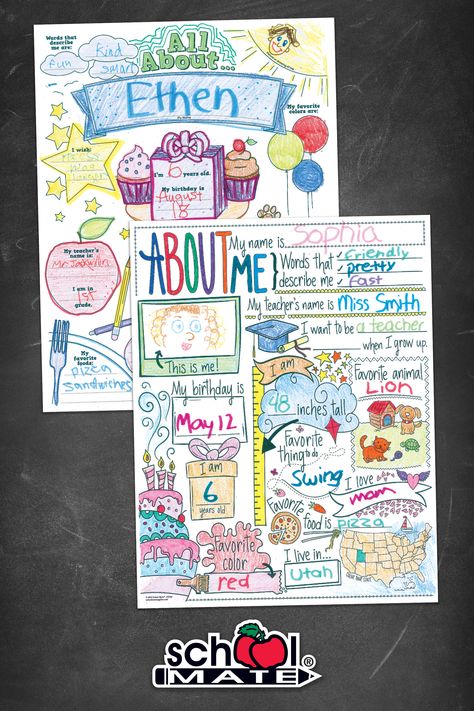 Words that
describe
me are:
kind
fun
smart
All
About...
Ethen
My favorite
colors are:
I wish:
I'm 6 years old.
My birthday is
August
18
My teacher's
name is:
Mr.
I am in
1st
grade.
My favorite
foods:
pizza
sandwiches
ABOUT
ME
My name is... Sophia
Words that
describe me
friendly
pretty
fast
My teacher's name is Miss Smith
I want to be a teacher
when I grow up.
This is me!
I am
48 inches tall
Favorite animal
Lion
My birthday is
May 12
Favorite
thing to do
Swing
I am
6
years old
I love
mom
Favorite
food is pizza
Favorite
color
red
I live in...
Utah
school
MATE®